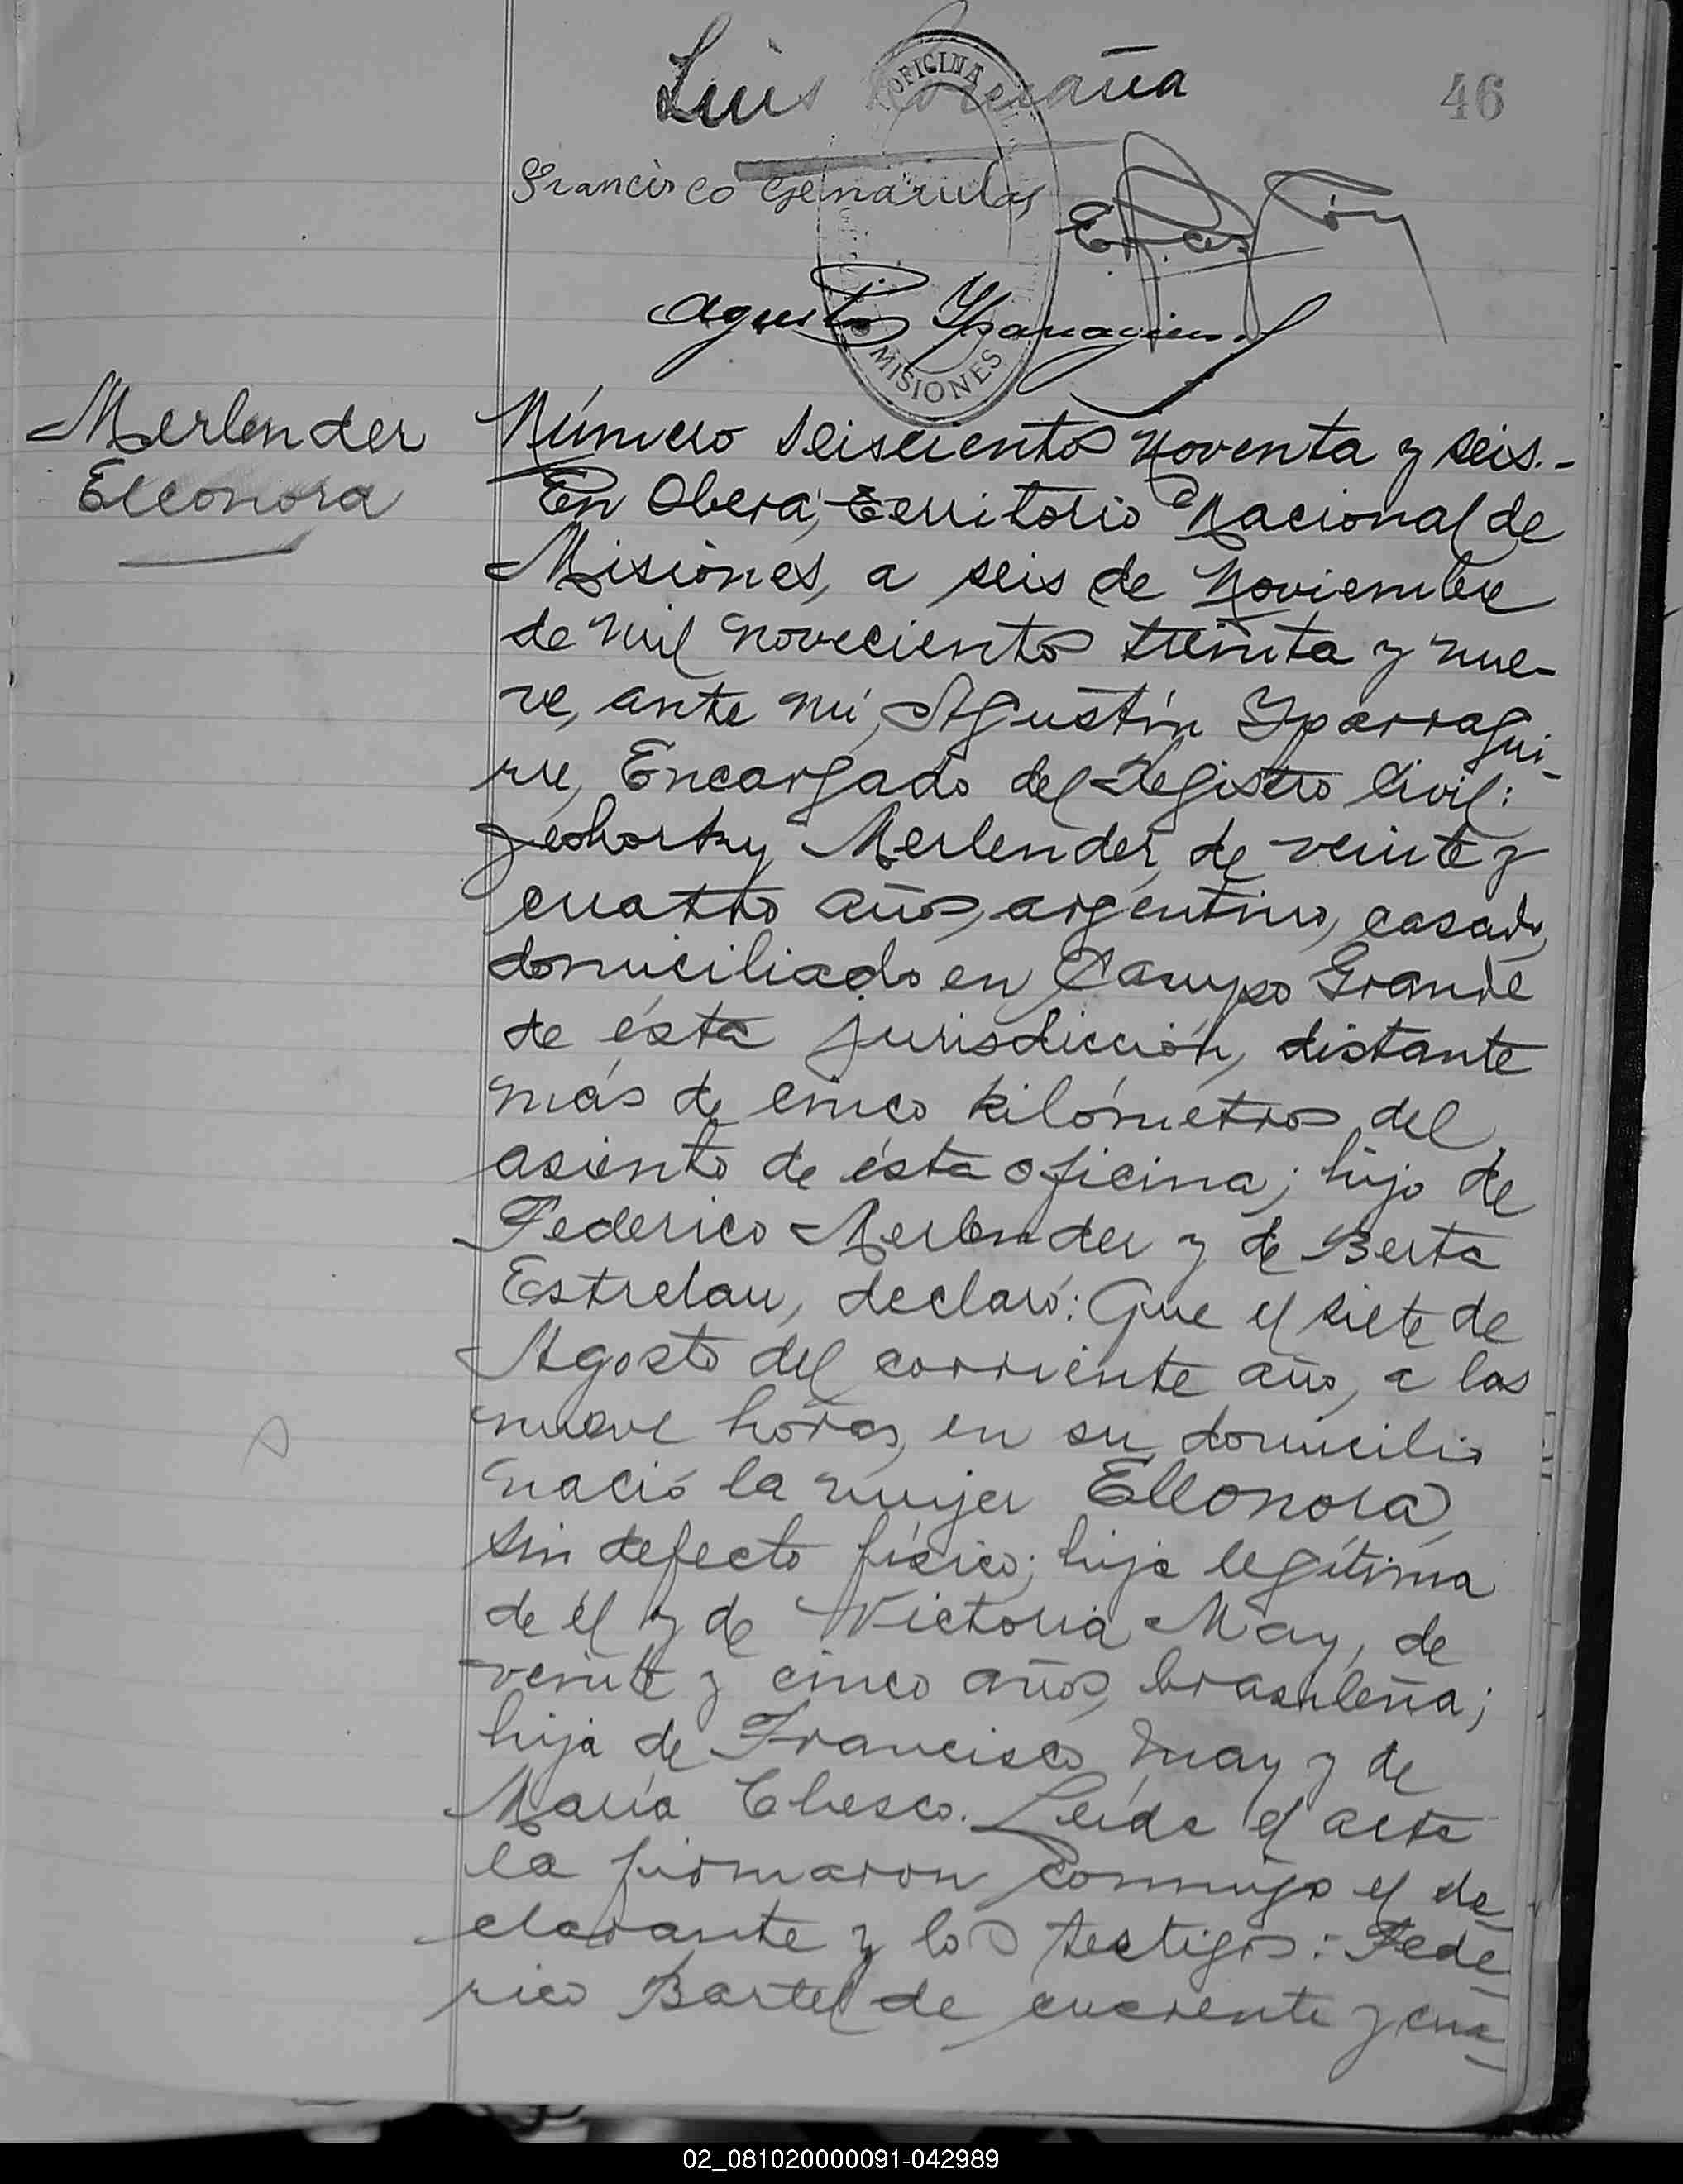 Luis
46
OFICINA
Francisco Genarulas
Agustín Yparraguirre
MISIONES
Merlender
Eleonora
Número Seiscientos noventa y seis.-
En Oberá, Territorio Nacional de
Misiones, a seis de Noviembre
de mil novecientos treinta y nue-
ve, ante mí, Agustín Yparragui-
rre, Encargado del Registro Civil:
Merlender, de veinte y
cuatro años, argentino, casado,
domiciliado en Campo Grande
de ésta jurisdicción, distante
más de cinco kilómetros del
asiento de ésta oficina; hijo de
Federico Merlender y de Berta
Estrelau, declaró: Que el siete de
Agosto del corriente año, a las
nueve horas, en su domicilio
nació la mujer Eleonora,
sin defecto físico; hija legítima
de él y de Victoria May, de
veinte y cinco años, brasileña;
hija de Francisco May y de
María Chesco. Leída el acta
la firmaron conmigo el de-
clarante y los testigos: Fede-
rico Bartel de cuarenta y cua-
02_081020000091-042989